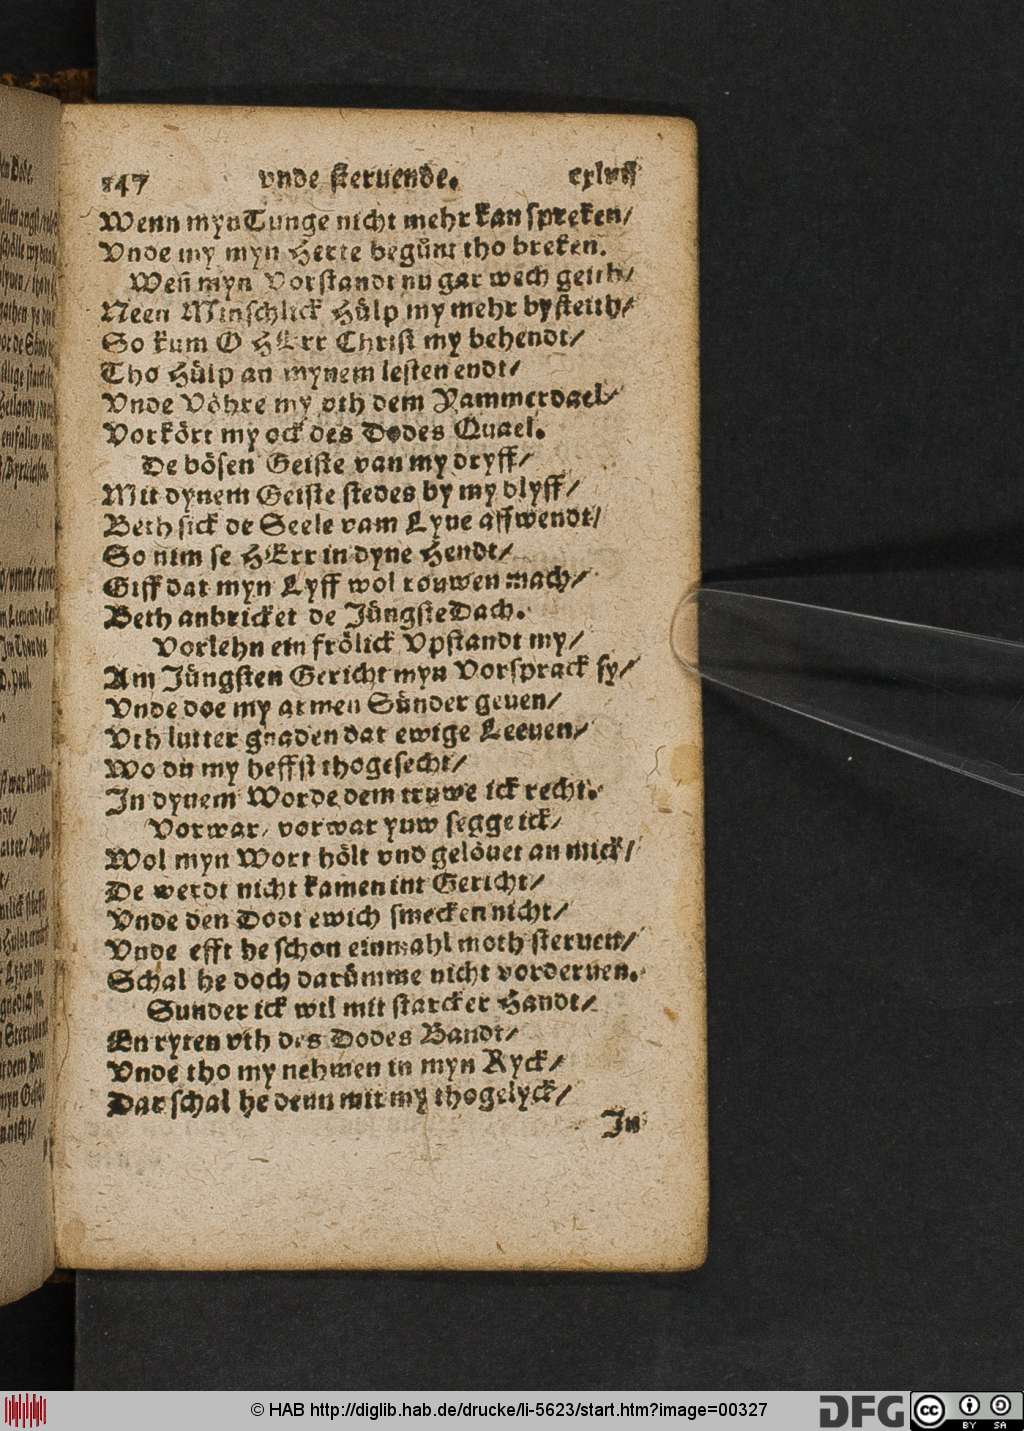 147 vnde steruende. cxlvij
Wenn myn Tunge nicht mehr kan spreken/
Vnde my myn Herte begünt tho breken.
Weñ myn Vorstandt nu gar wech geith/
Neen Minschlick Hülp my mehr bysteith/
So kum O HErr Christ my behendt/
Tho Hülp an mynem lesten endt/
Vnde Vöhre my vth dem Yammerdael/
Vorkört my ock des Dodes Quael.
De bösen Geiste van my dryff/
Mit dynem Geiste stedes by my blyff/
Beth sick de Seele vam Lyue affwendt/
So nim se HErr in dyne Hendt/
Giff dat myn Lyff wol rouwen mach/
Beth anbricket de Jüngste Dach.
Vorlehn ein frölick Vpstandt my/
Am Jüngsten Gericht myn Vorsprack sy/
Vnde doe my armen Sünder geuen/
Vth lutter gnaden dat ewige Leeuen/
Wo du my heffst thogesecht/
In dynem Worde dem truwe ick recht.
Vorwar/ vorwar yuw segge ick/
Wol myn Wort hölt vnd gelöuet an mick/
De werdt nicht kamen int Gericht/
Vnde den Dodt ewich smecken nicht/
Vnde efft he schon einmahl moth steruen/
Schal he doch darümme nicht vorderuen.
Sunder ick wil mit starcker Handt/
En ryten vth des Dodes Bandt/
Vnde tho my nehmen in myn Ryck/
Dar schal he denn mit my thogelyck/
In
© HAB http://diglib.hab.de/drucke/li-5623/start.htm?image=00327
DFG
cc BY SA